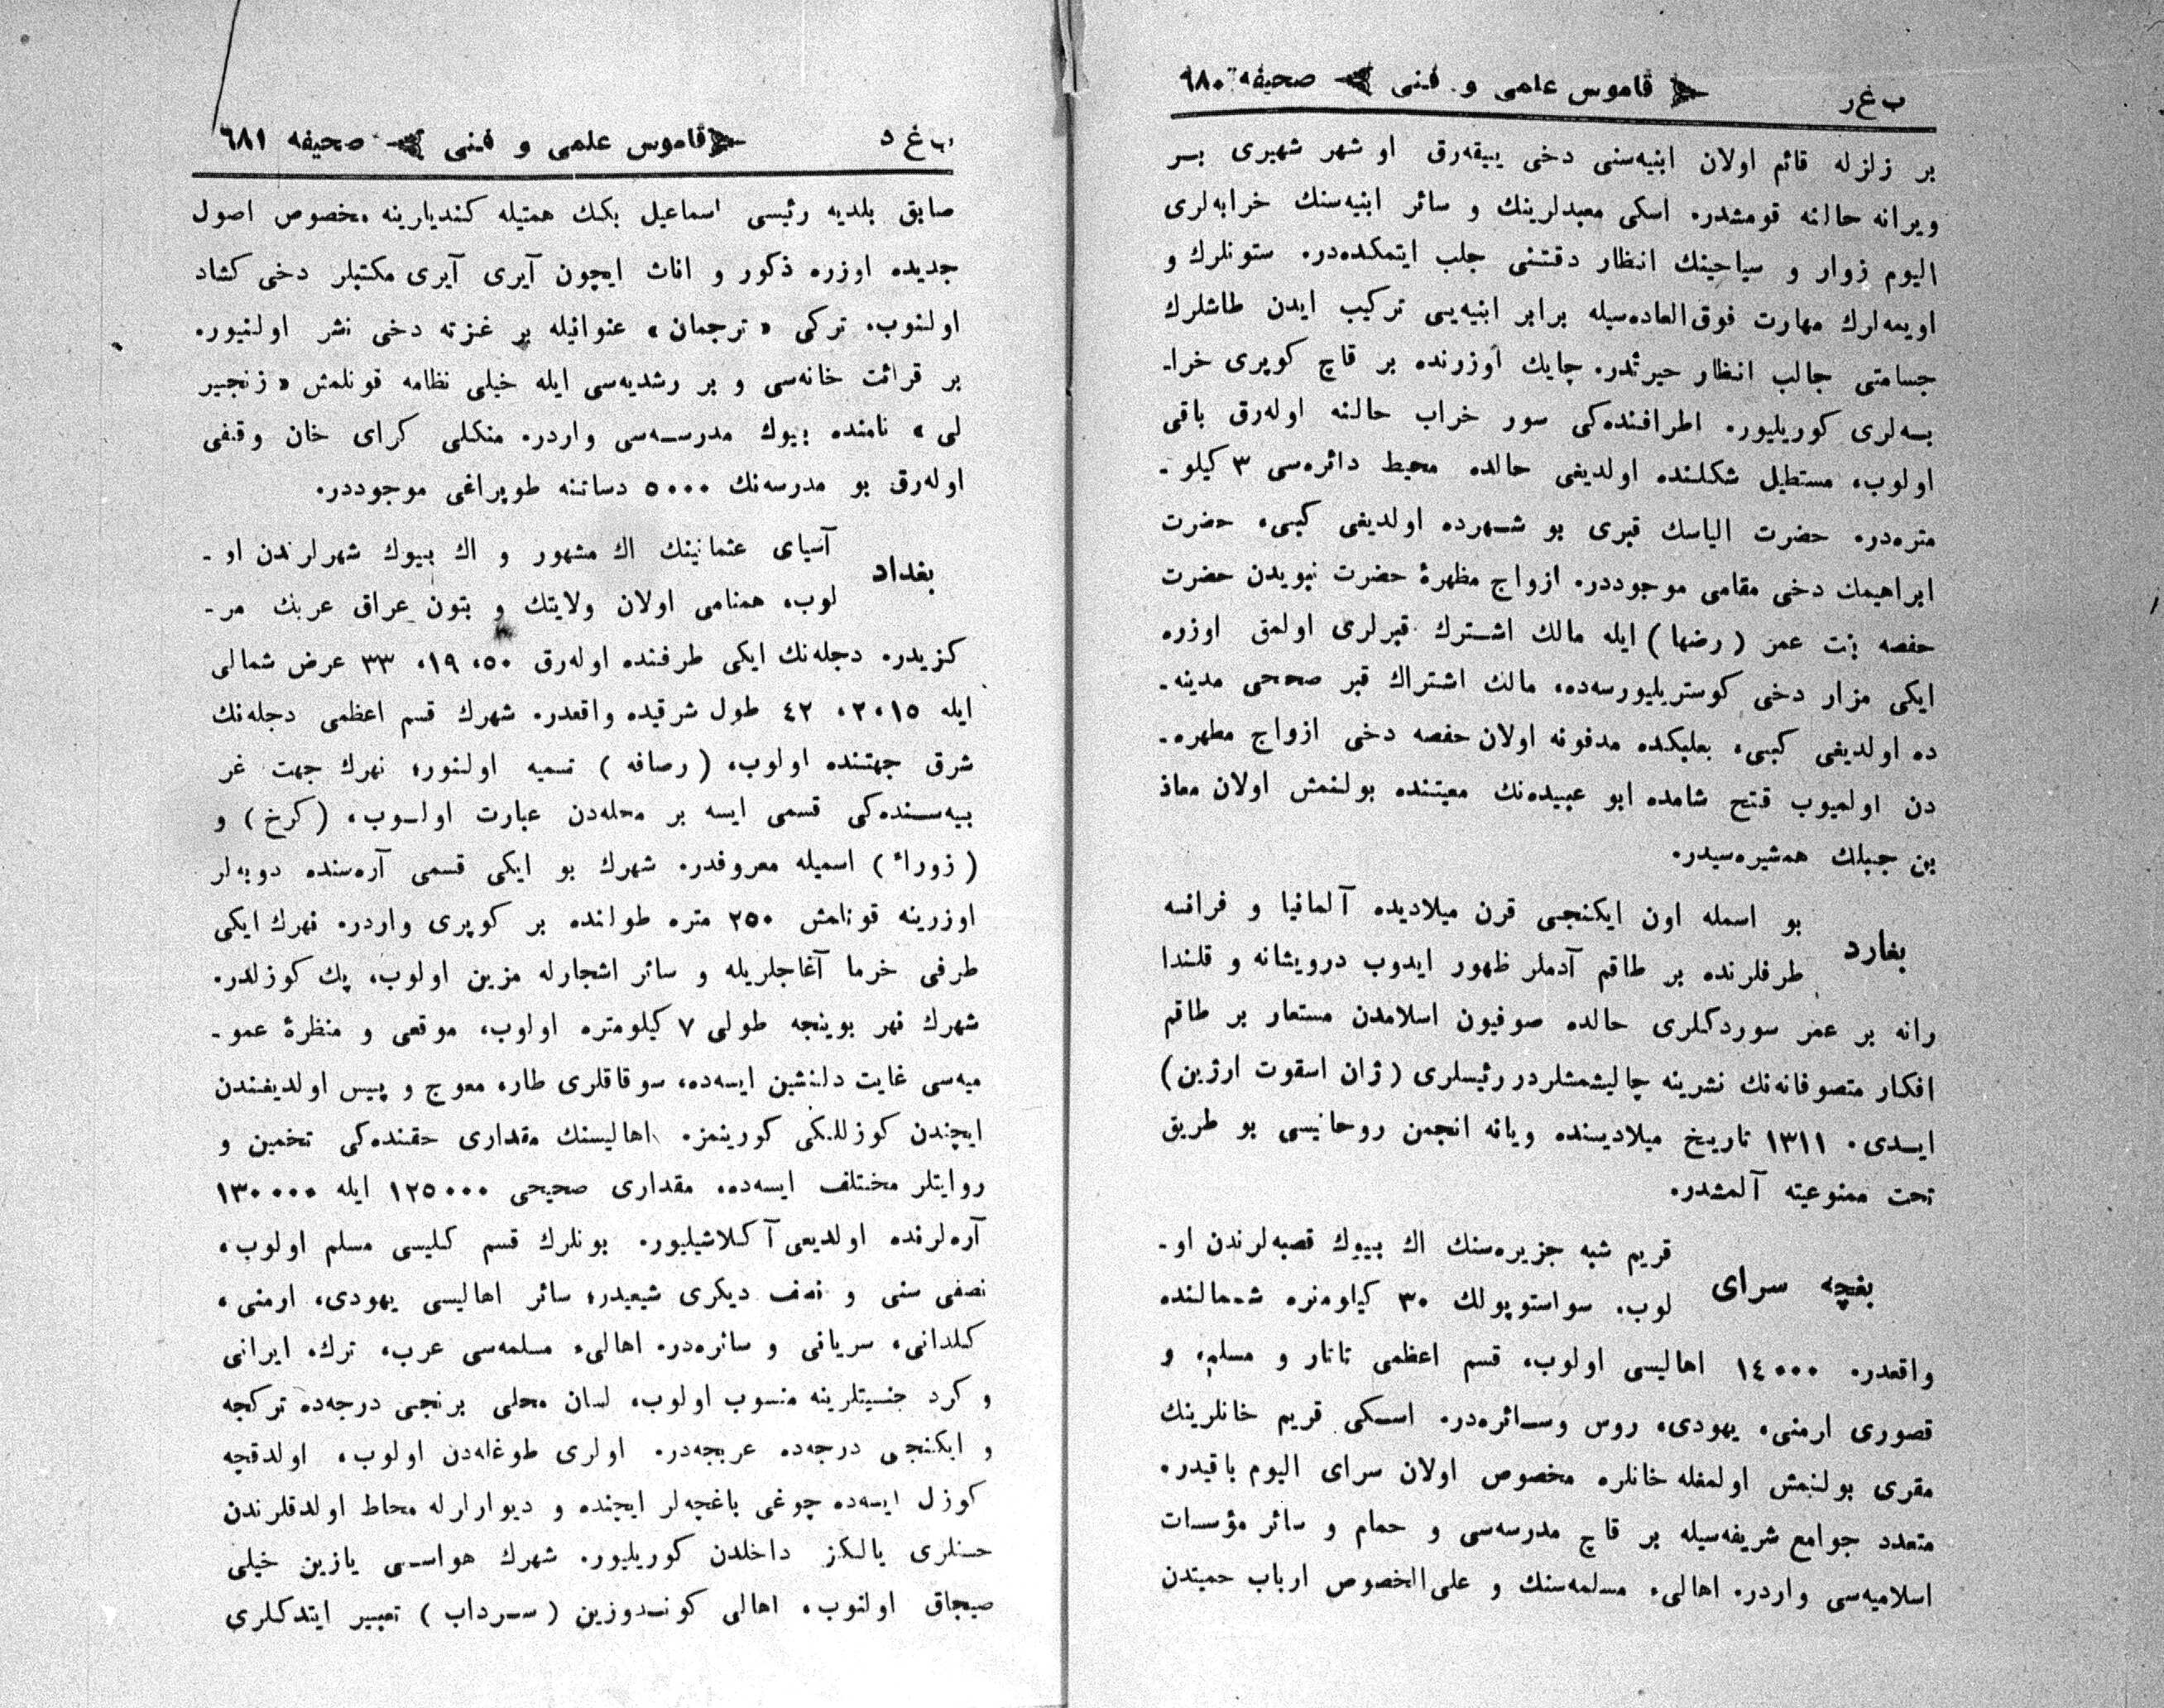 ب غ ر   قاموس علمی و فنی   صحیفه ٦٨٠
بر زلزله قائم اولان ابنیه‌سنی دخی ییقه‌رق او شهر شهیری بر
ویرانه حالنه قومشدر. اسکی معبدلرینك و سائر ابنیه‌سنك خرابه‌لری
الیوم زوار و سیاحینك انظار دقتنی جلب ایتمکده‌در. ستونلرك و
اویمه‌لرك مهارت فوق‌العاده‌سیله برابر ابنیه‌یی ترکیب ایدن طاشلرك
جسامتی جالب انظار حیرتدر. چایك اوزرنده بر قاچ کوپری خرا-
به‌لری کوریلیور. اطرافنده‌کی سور خراب حالنه اوله‌رق باقی
اولوب، مستطیل شکلنده اولدیغی حالده محیط دائره‌سی ٣ کیلو-
متره‌در. حضرت الیاسك قبری بو شهرده اولدیغی کبی، حضرت
ابراهیمك دخی مقامی موجوددر. ازواج مطهرهٔ حضرت نبویدن حضرت
حفصه بنت عمر (رضها) ایله مالك اشترك قبرلری اولمق اوزره
ایکی مزار دخی کوستریلیورسه‌ده، مالك اشتراك قبر صححی مدینه-
ده اولدیغی کبی، بعلبکده مدفونه اولان حفصه دخی ازواج مطهره-
دن اولمیوب فتح شامده ابو عبیده‌نك معیتنده بولنمش اولان معاذ
بن جبلك همشیره‌سیدر.
بغارد   بو اسمله اون ایکنجی قرن میلادیده آلمانیا و فرانسه
طرفلرنده بر طاقم آدملر ظهور ایدوب درویشانه و قلندا
رانه بر عمر سوردکلری حالده صوفیون اسلامدن مستعار بر طاقم
افکار متصوفانه‌نك نشرینه چالیشمشلردر رئیسلری (ژان اسقوت ارژین)
ایدی. ١٣١١ تاریخ میلادیسنده ویانه انجمن روحانیسی بو طریق
تحت ممنوعیته آلمشدر.
بغچه سرای   قریم شبه جزیره‌سنك اك بیوك قصبه‌لرندن او-
لوب، سواستوپولك ٣٠ کیلومتره شمالنده
واقعدر. ١٤٠٠٠ اهالیسی اولوب، قسم اعظمی تاتار و مسلم، و
قصوری ارمنی، یهودی، روس وسائره‌در. اسکی قریم خانلرینك
مقری بولنمش اولمغله خانلره مخصوص اولان سرای الیوم باقیدر.
متعدد جوامع شریفه‌سیله بر قاچ مدرسه‌سی و حمام و سائر مؤسسات
اسلامیه‌سی واردر. اهالیء مسلمه‌سنك و علی‌الخصوص ارباب حمیتدن
ب غ د   قاموس علمی و فنی   صحیفه ٦٨١
صابق بلدیه رئیسی اسماعیل بکك همتیله کندیلرینه مخصوص اصول
جدیده اوزره ذکور و اناث ایچون آیری آیری مکتبلر دخی کشاد
اولنوب، ترکی «ترجمان» عنوانیله بر غزته دخی نشر اولنیور.
بر قرائت خانه‌سی و بر رشدیه‌سی ایله خیلی نظامه قونلمش «زنجیر
لی» نامنده بیوك مدرسه‌سی واردر. منکلی کرای خان وقفی
اوله‌رق بو مدرسه‌نك ٥٠٠٠ دساتنه طوپراغی موجوددر.
بغداد   آسیای عثمانینك اك مشهور و اك بیوك شهرلرندن او-
لوب، همنامی اولان ولایتك و بتون عراق عربك مر-
کزیدر. دجله‌نك ایکی طرفنده اوله‌رق ٥٠، ١٩، ٣٣ عرض شمالی
ایله ١٥، ٢، ٤٢ طول شرقیده واقعدر. شهرك قسم اعظمی دجله‌نك
شرق جهتنده اولوب، (رصافه) تسمیه اولنور؛ نهرك جهت غر
بیه‌سنده‌کی قسمی ایسه بر محله‌دن عبارت اولوب، (کرخ) و
(زوراء) اسمیله معروفدر. شهرك بو ایکی قسمی آره‌سنده دوبه‌لر
اوزرینه قونلمش ٢٥٠ متره طولنده بر کوپری واردر. نهرك ایکی
طرفی خرما آغاجلریله و سائر اشجارله مزین اولوب، پك کوزلدر.
شهرك نهر بوینجه طولی ٧ کیلومتره اولوب، موقعی و منظرهٔ عمو-
میه‌سی غایت دلنشین ایسه‌ده، سوقاقلری طار، معوج و پیس اولدیغندن
ایچندن کوزللکی کورینمز. اهالیسنك مقداری حقنده‌کی تخمین و
روایتلر مختلف ایسه‌ده، مقداری صحیحی ١٢٥٠٠٠ ایله ١٣٠٠٠٠
آره‌لرنده اولدیغی آکلاشیلیور. بونلرك قسم کلیسی مسلم اولوب،
نصفی سنی و نصف دیکری شیعیدر؛ سائر اهالیسی یهودی، ارمنی،
کلدانی، سریانی و سائره‌در. اهالیء مسلمه‌سی عرب، ترك، ایرانی
و کرد جنسیتلرینه منسوب اولوب، لسان محلی برنجی درجه‌ده ترکجه
و ایکنجی درجه‌ده عربجه‌در. اولری طوغله‌دن اولوب، اولدقچه
کوزل ایسه‌ده چوغی باغچه‌لر ایچنده و دیوارلرله محاط اولدقلرندن
حسنلری یالکز داخلدن کوریلیور. شهرك هواسی یازین خیلی
صیجاق اولنوب، اهالی کوندوزین (سرداب) تعبیر ایتدکلری